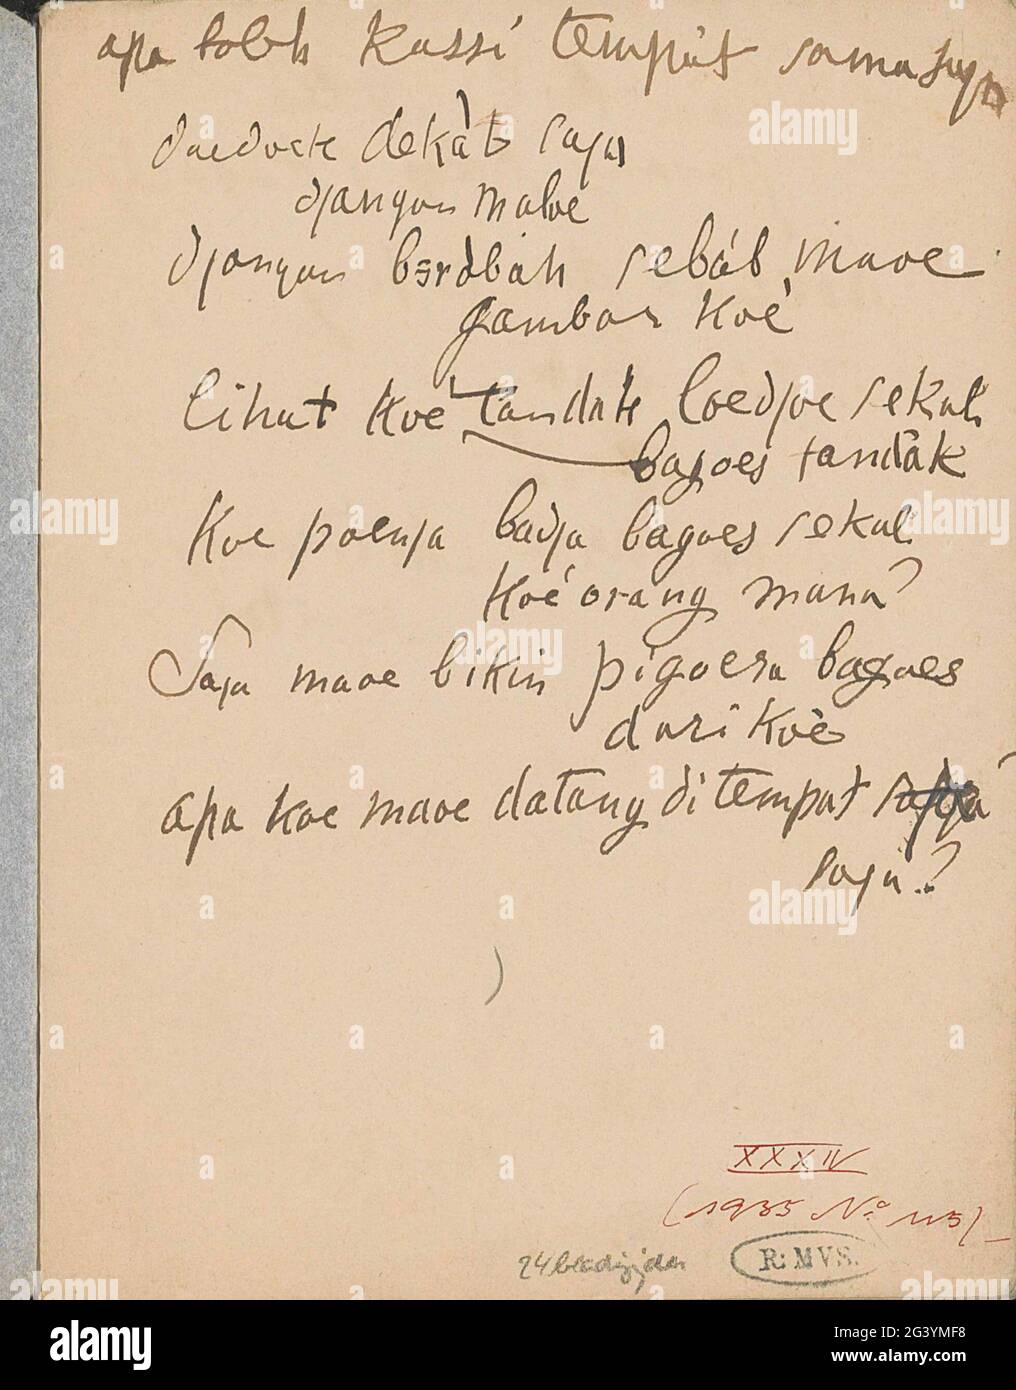 apa boleh kassi tempat sama saya
doedock dekàt saja
djangan maloe
djangan berobah sebáb maoe
gambar koé
lihat koé tandak loedjoe sekali
bagoes tandàk
Koe poenja badja bagoes sekali
Koé orang mana?
Saja maoe bikin pigoera bagoes
dari Koè
apa koe maoe datang di tempat
saja?
XXXIV
(1935 No 113)
24 bladzijden
R: MVS.
alamy
Image ID: 2G3YMF8
www.alamy.com